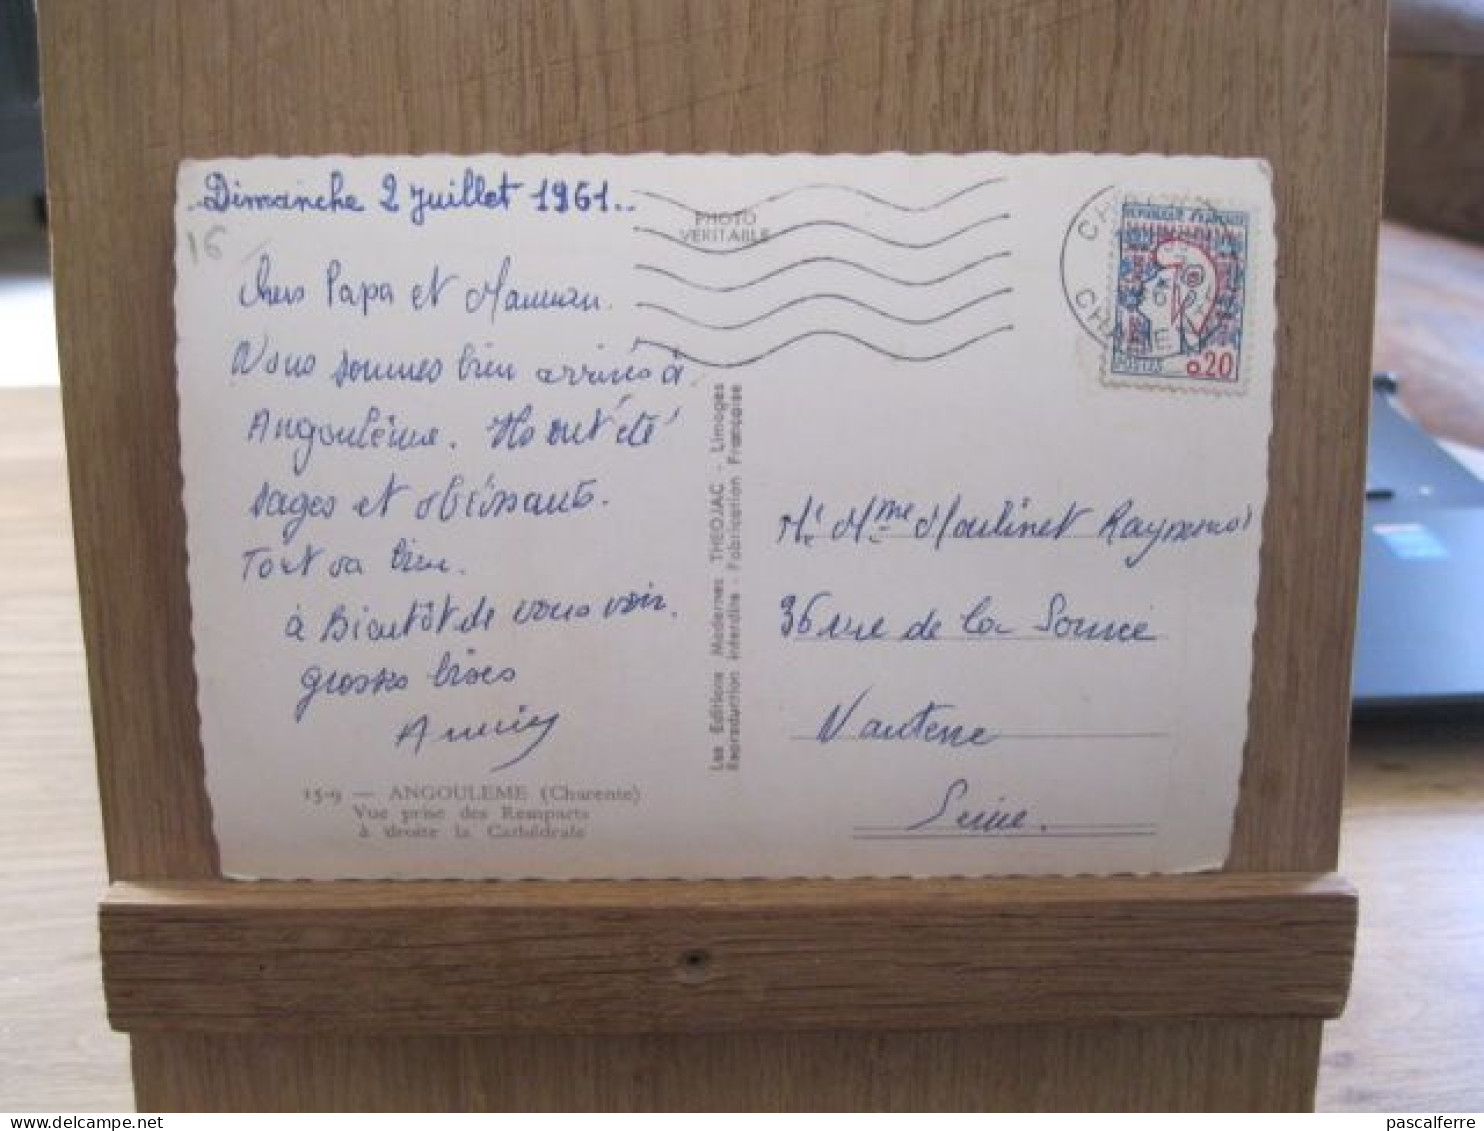 Dimanche 2 Juillet 1961..
16
Chers Papa et Maman.
Nous sommes bien arrivés à
Angoulême. Ils ont été
sages et obéissants.
Tout va bien.
à Bientôt de vous voir.
grosses bises
15-9 — ANGOULEME (Charente)
Vue prise des Remparts
à droite la Cathédrale
PHOTO
VERITABLE
Les Editions Modernes THEOJAC - Limoges
Reproduction interdite - Fabrication Française
REPUBLIQUE FRANÇAISE
POSTES 0,20
Mr Mme Moulinet Raymond
36 rue de la Source
Nanterre
Seine.
pascalferre